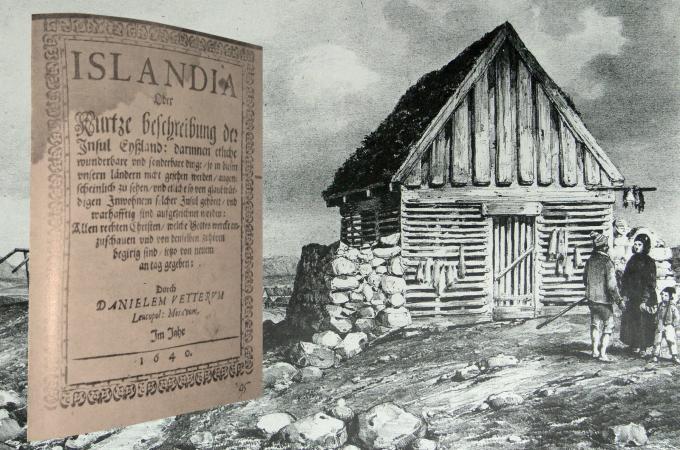 ISLANDIA
Oder
Kurtze beschreibung der
Insul Eyßland: darinnen etliche
wunderbare vnd sonderbare dinge / so in diesen
vnsern ländern nicht gesehen werden / augen-
scheinlich zu sehen / vnd etliche so von glaubwür-
digen Inwohnern solcher Insul gehöret / vnd
warhafftig sind auffgezeichnet worden:
Allen rechten Christen / welche Gottes wercke an-
zuschauen vnd von denselben zuhören
begirig sind / itzo von newem
an tag gegeben:
Durch
DANIELEM VETTERVM
Leucopol: Moravum,
Im Jahr
1640.